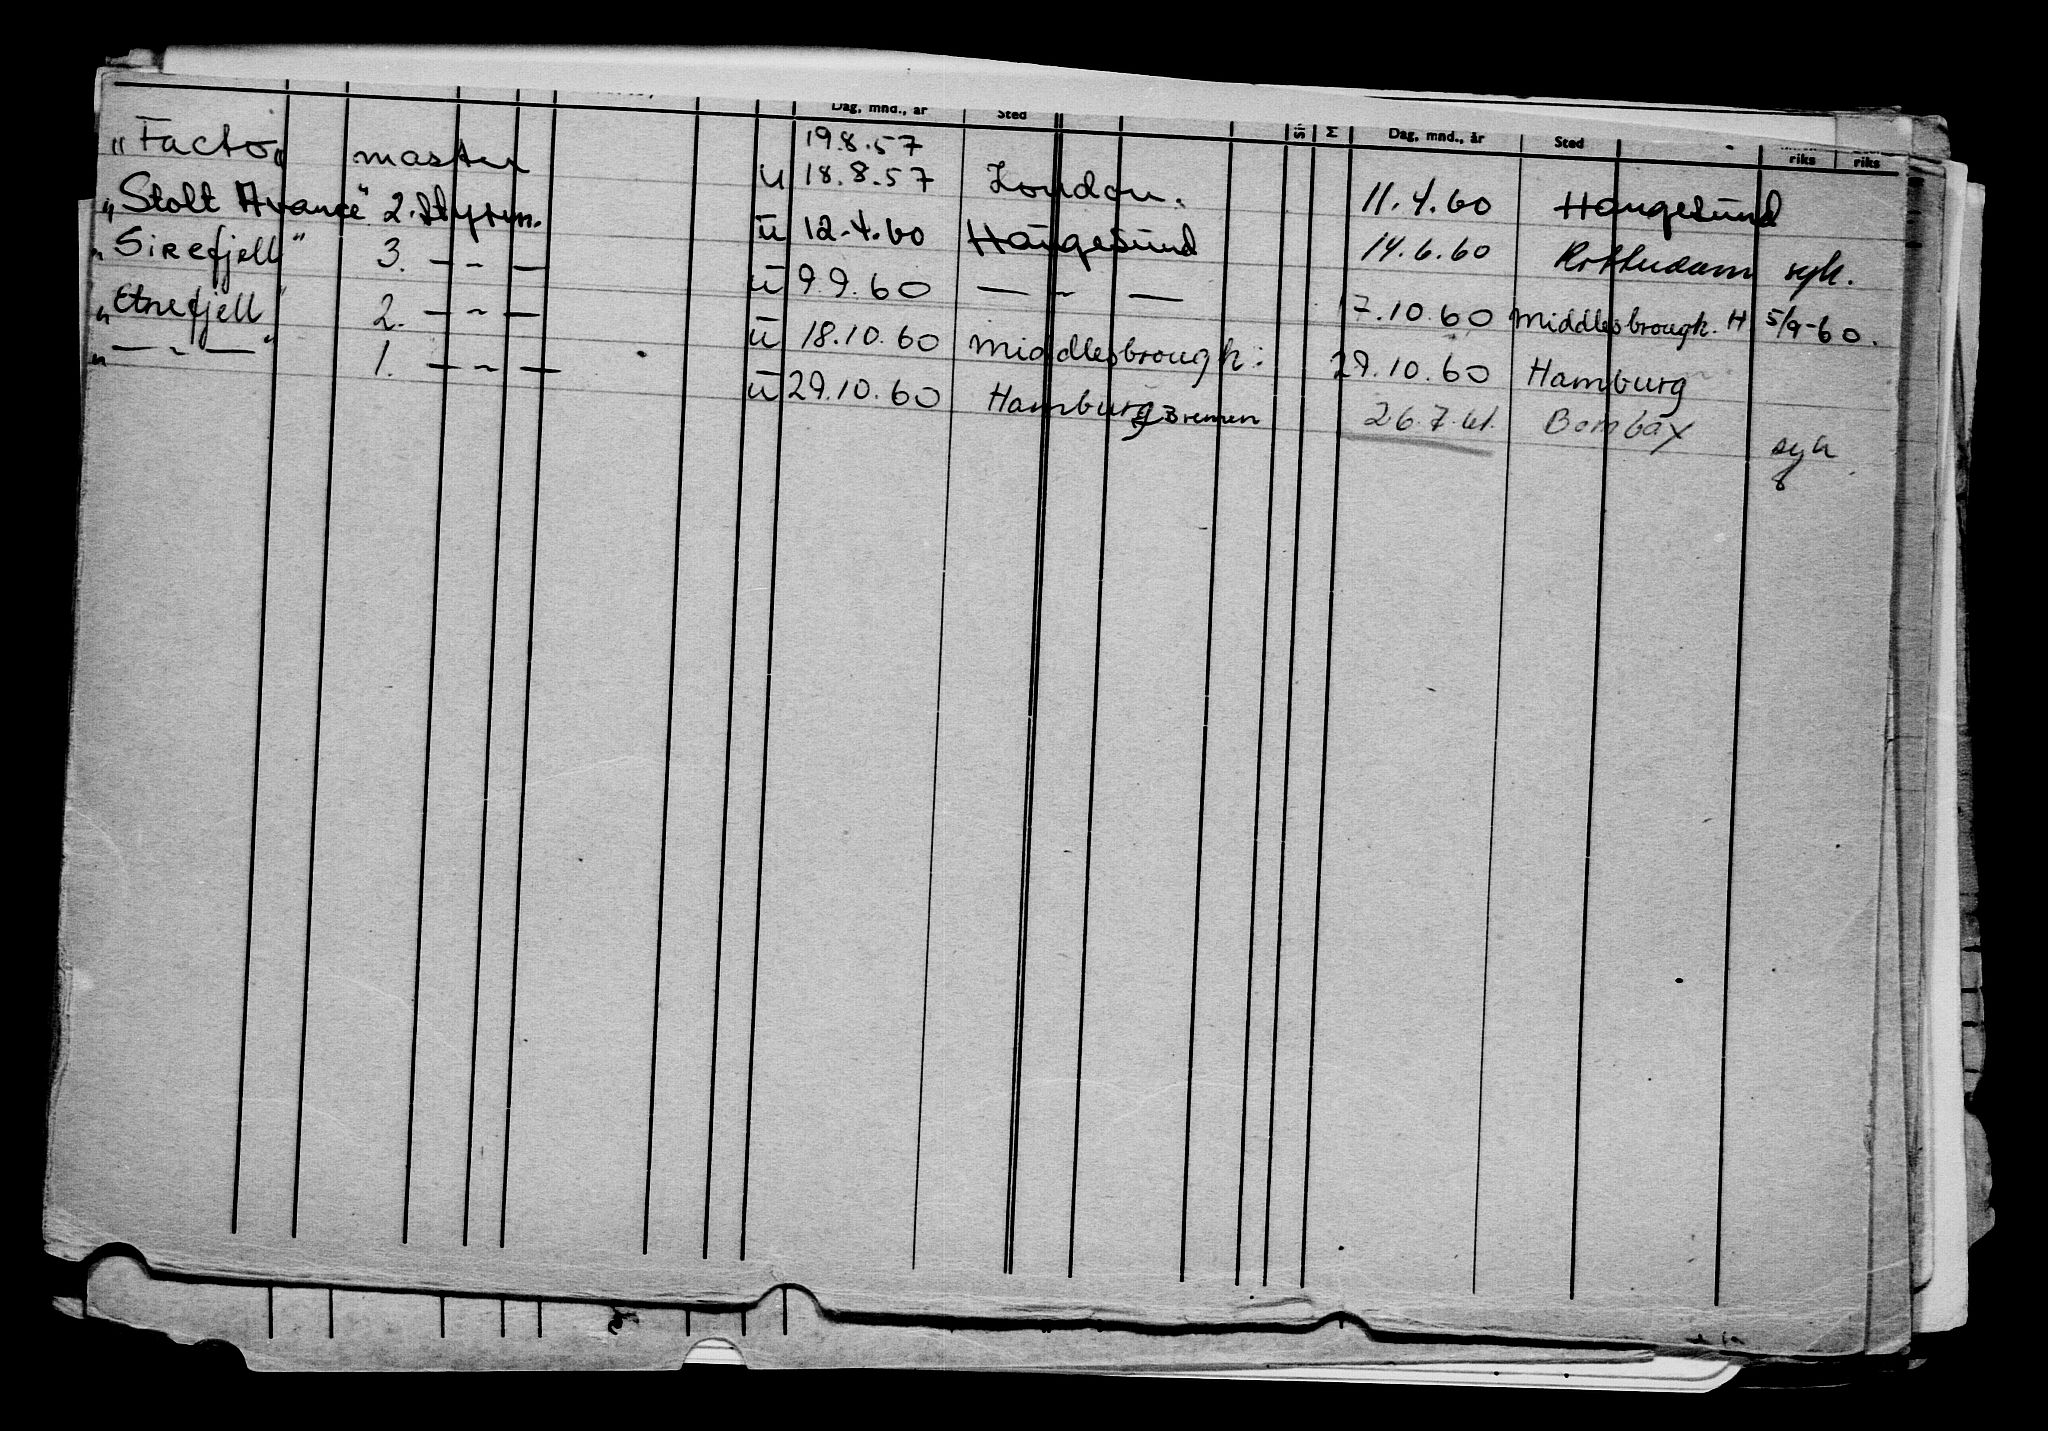 Dag, mnd., år Sted M Dag, mnd., år Sted riks riks
19.8.57
"Facto" master u 18.8.57 London. 11.4.60 Haugesund
"Stolt Avance" 2. styrm. u 12.4.60 Haugesund 14.6.60 Rotterdam syk.
"Sirefjell" 3. — " — u 9.9.60 — " — 17.10.60 Middlesbrough. H 5/9-60.
"Etnefjell" 2. — " — u 18.10.60 Middlesbrough. 29.10.60 Hamburg
" — " — " 1. — " — u 29.10.60 Hamburg Bremen 26.7.61. Bombay syk